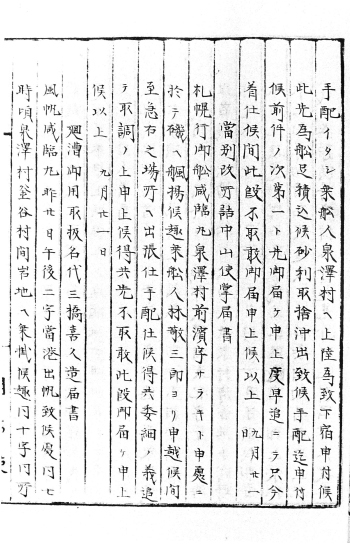 手配イタシ乗船人泉澤村ヘ上陸為致下宿申付候
此先為船足積込候砂利取捨沖出致候手配迄申付
候前件ノ次第一ト先御届ケ申上度早追ニテ只今
着仕候間此段不取敢御届申上候以上 九月廿一
當別改所詰中山使掌届書
札幌行御船咸臨丸泉澤村前濱字サラキト申處ニ
於テ磯ヘ颿揚候趣乗船人林敬三郎ヨリ申越候間
至急右之場所ヘ出張仕手配仕候得共委細ノ義追
テ取調ノ上申上候得共先不取敢此段御届ケ申上
候以上 九月廿一日
廻漕御用取扱名代三橋喜久造届書
風帆咸臨丸昨廿日午後二字當港出帆致候處同七
時頃泉澤村釜谷村間岩地ヘ乗懸候趣同十字同所